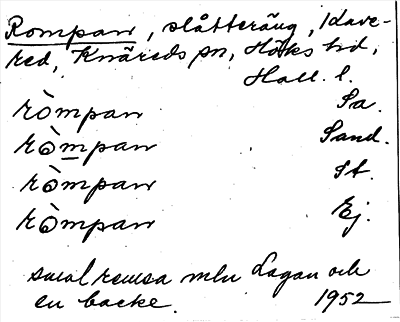 Rompan, slåtteräng, Idave-
red, Knäreds sn, Höks hd,
Hall. l.
ròmpan Sa.
ròmpan Sand.
ròmpan St.
ròmpan Ej.
smal remsa mln Lagan och
en backe. 1952